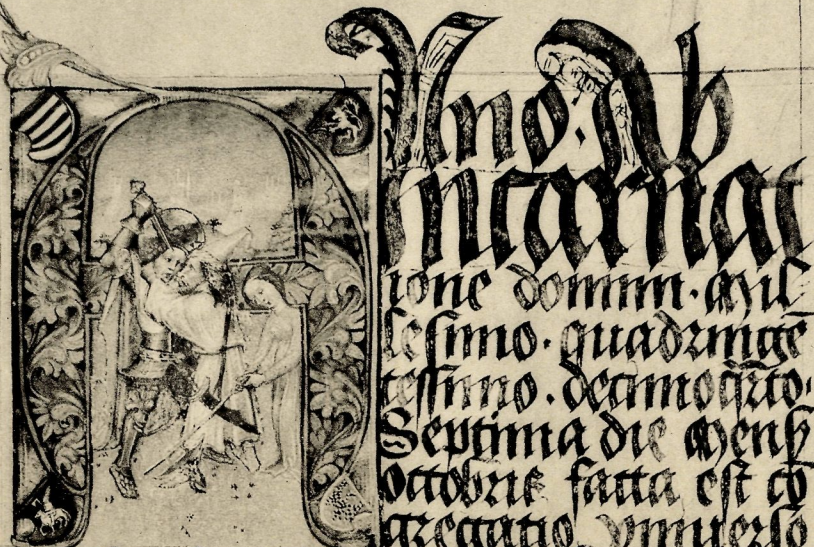 Anno · Ab
incarnat
ione domini · Mil
lesimo · quadringe
tessimo · decimoqrto ·
Septima die Mens
ottobris fatta est co
gregatio universo